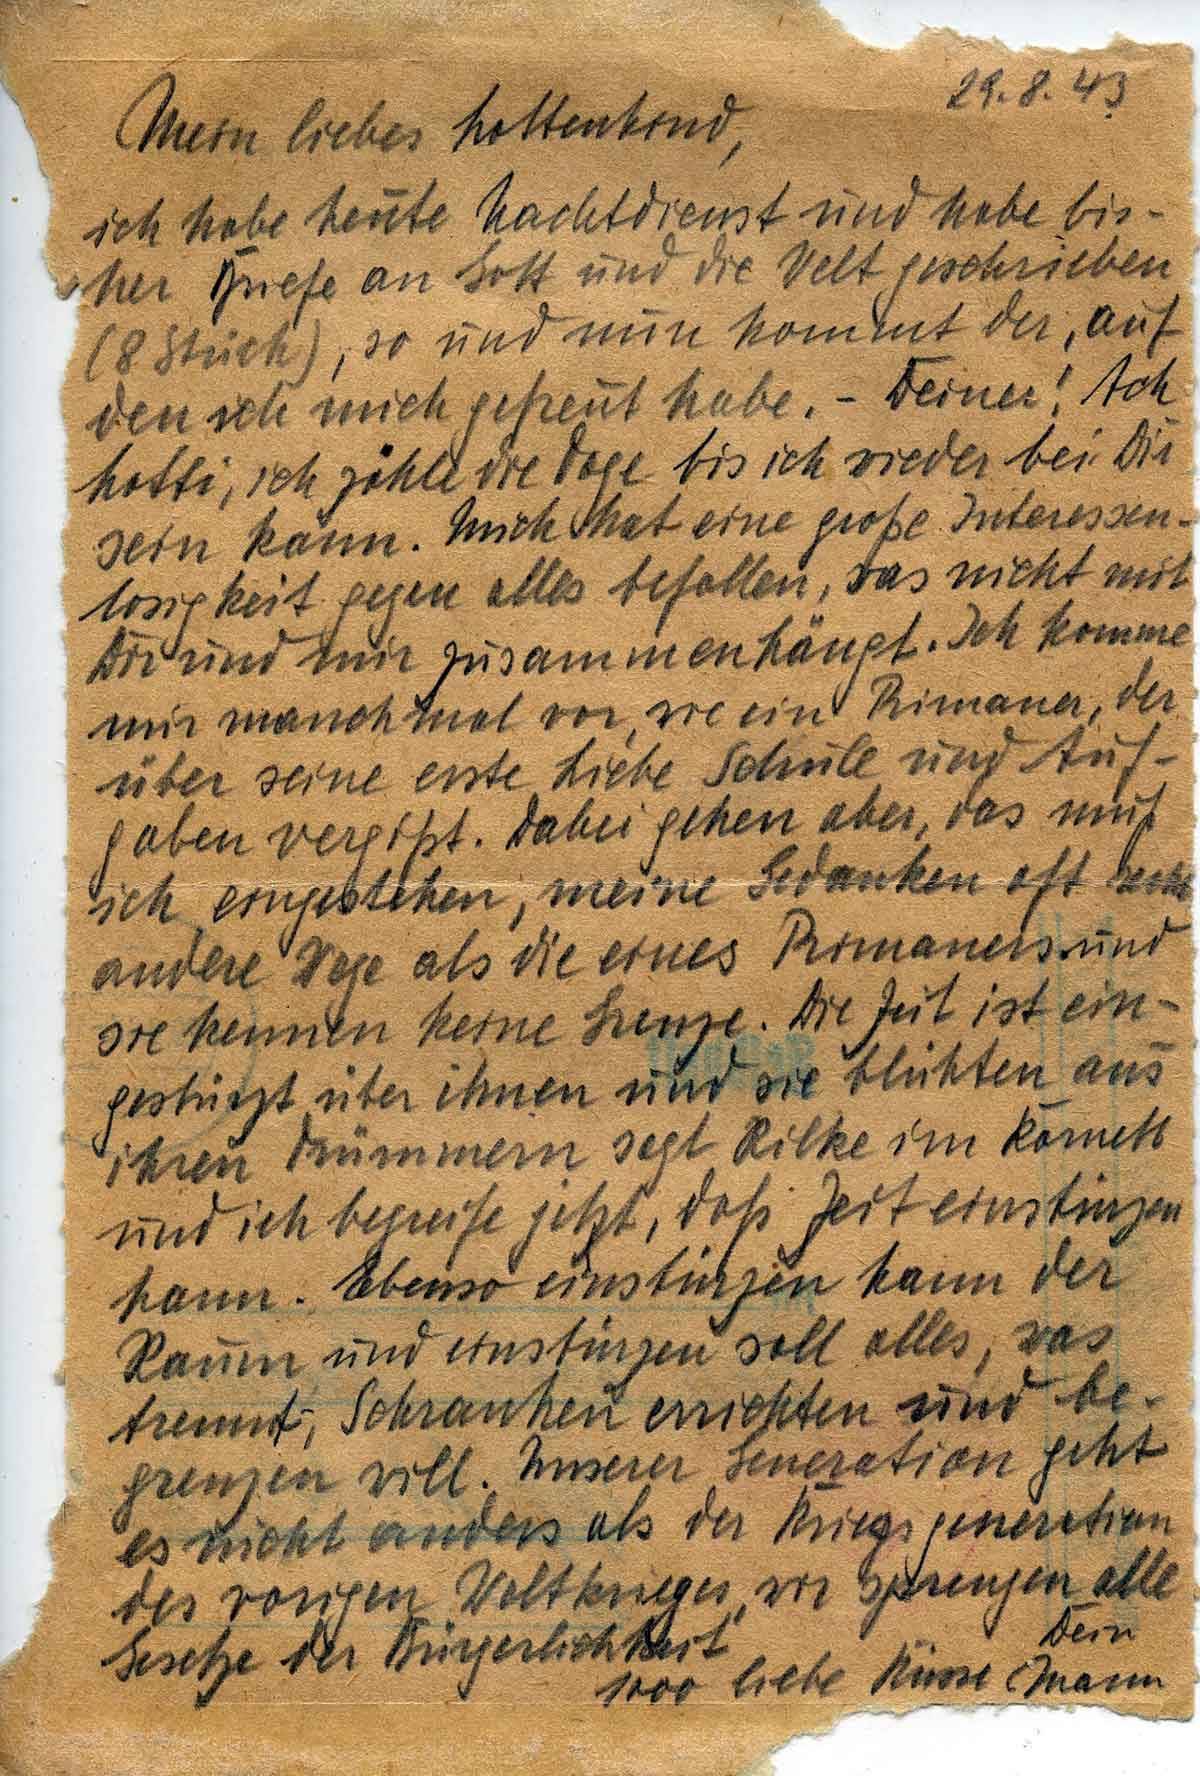 29.8.43
Mein liebes Hottenkind,
ich habe heute Nachtdienst und habe bis-
her Briefe an Gott und die Welt geschrieben
(8 Stück), so und nun kommt der, auf
den ich mich gefreut habe. - Deiner! Ach
Hotti, ich zähle die Tage bis ich wieder bei Dir
sein kann. Mich hat eine große Interessen-
losigkeit gegen alles befallen, was nicht mit
Dir und mir zusammenhängt. Ich komme
mir manchmal vor, wie ein Primaner, der
über seine erste Liebe Schule und Auf-
gaben vergißt. Dabei gehen aber, das muß
ich eingestehen, meine Gedanken oft
andere Wege als die eines Primaners und
sie kennen keine Grenze. Die Zeit ist ein-
gestürzt über ihnen und sie blühten aus
ihren Trümmern sagt Rilke im Kornett
und ich begreife jetzt, daß Zeit einstürzen
kann. Ebenso einstürzen kann der
Raum und einstürzen soll alles, was
trennt, Schranken errichten und be-
grenzen will. Unserer Generation geht
es nicht anders als der Kriegsgeneration
des vorigen Weltkrieges, wir sprengen alle
Gesetze der Bürgerlichkeit
1000 liebe Küsse Dein
Mann